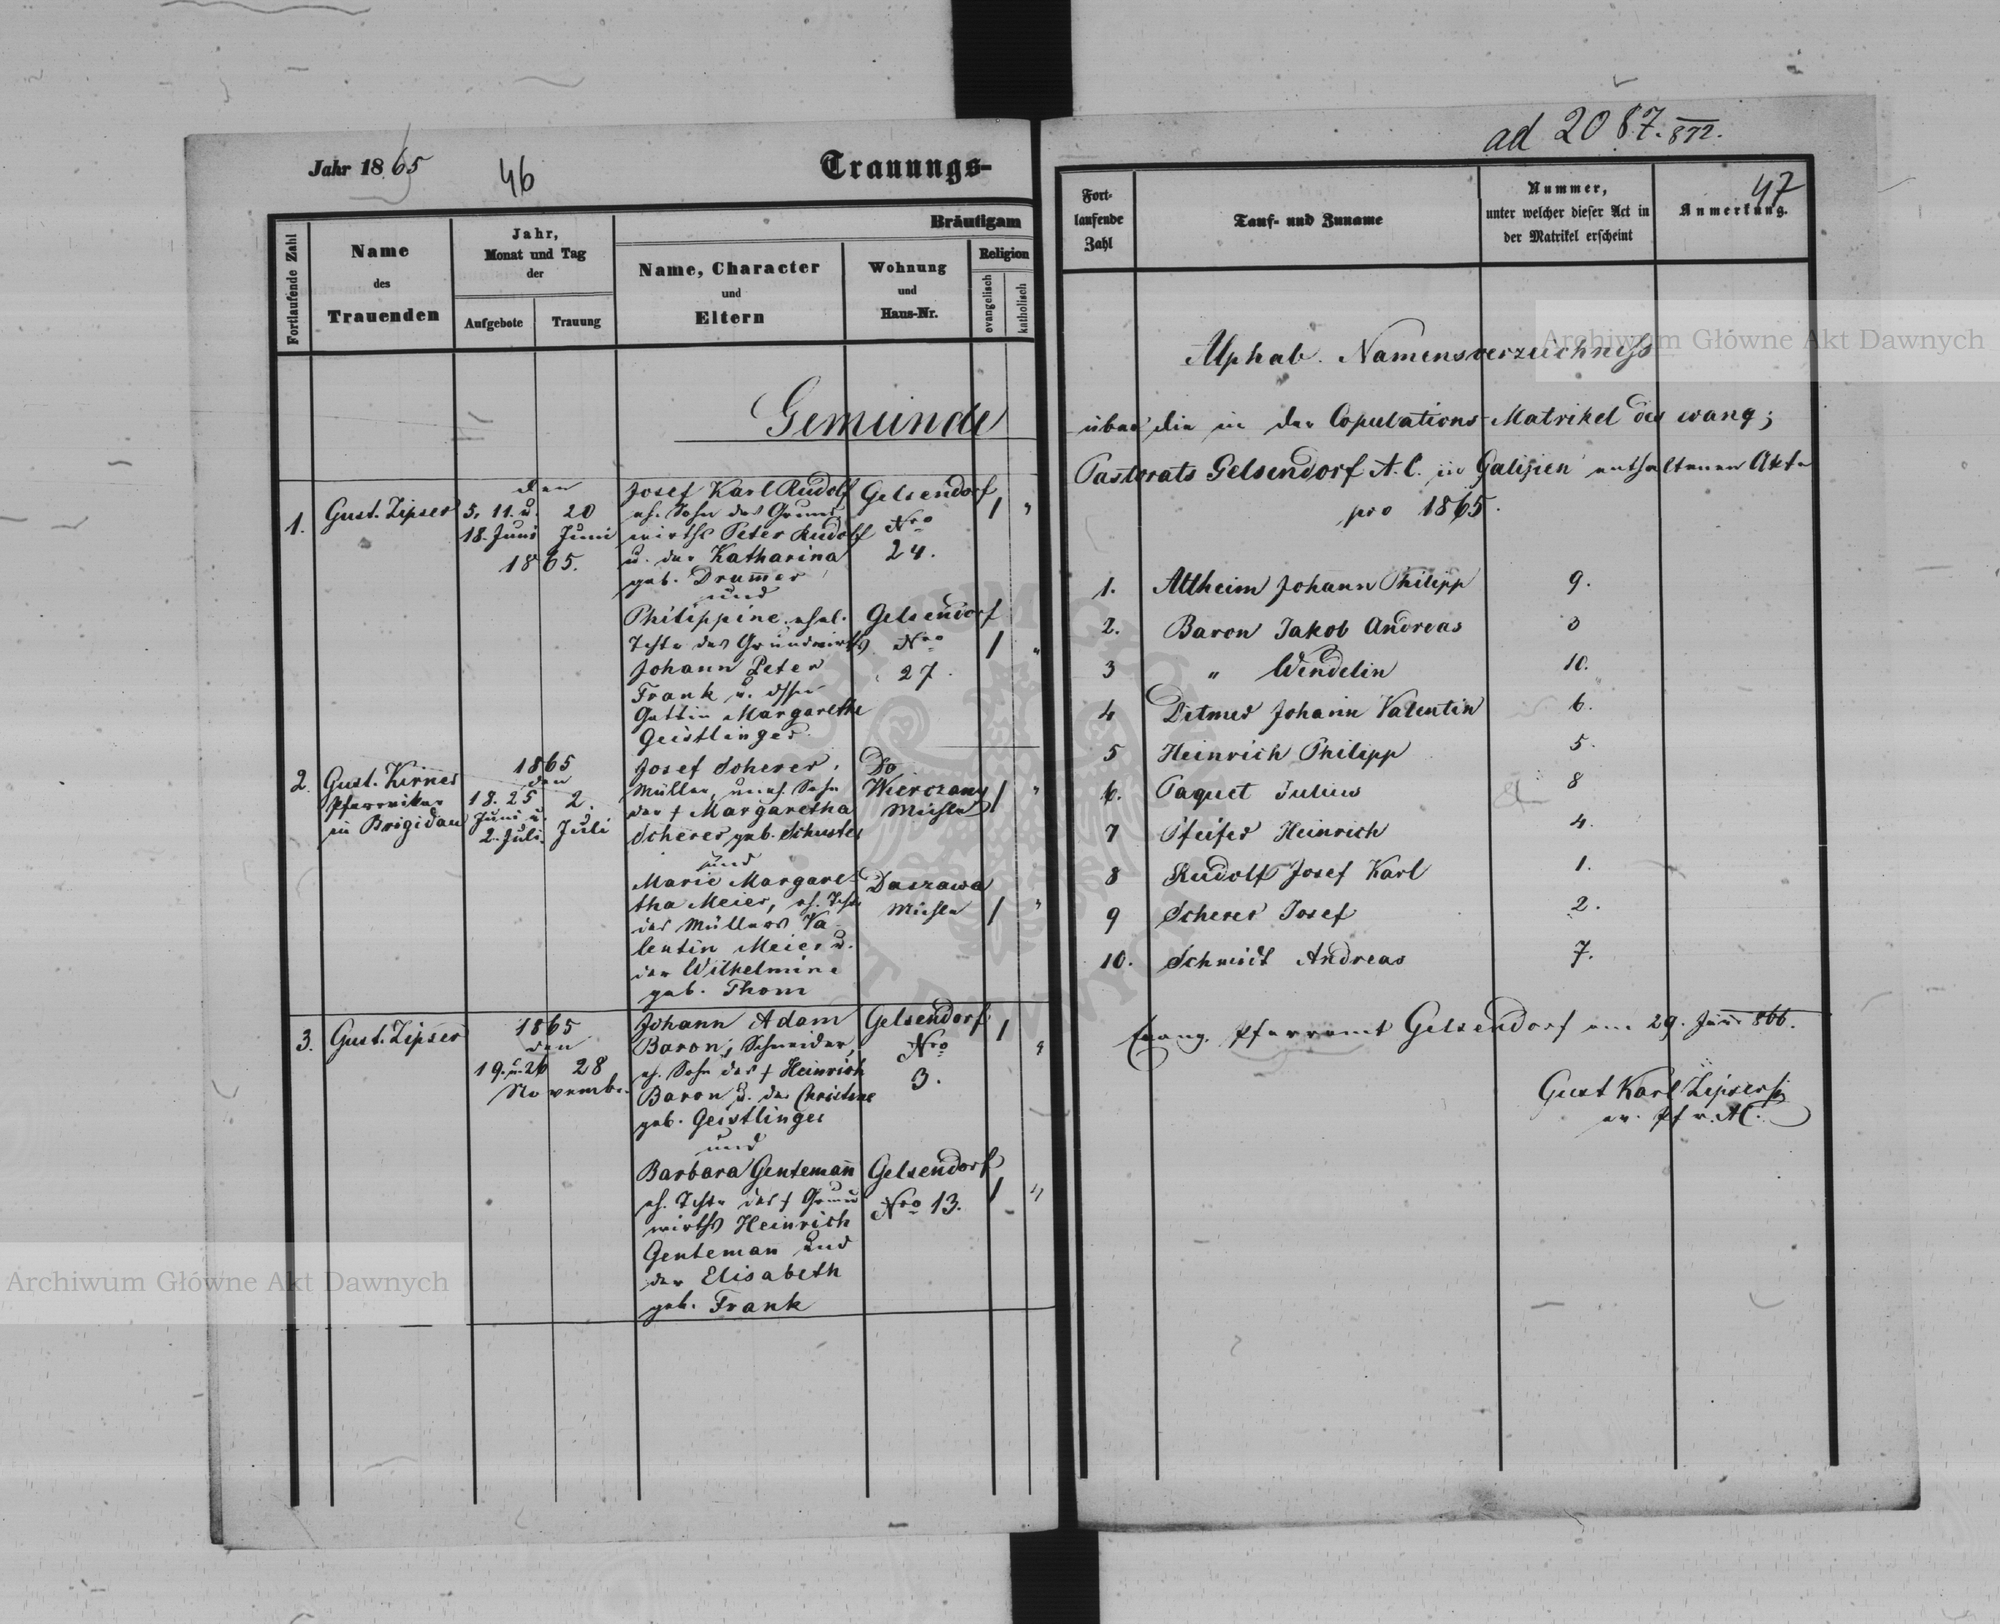 Jahr 1865
46
Trauungs-
Fortlaufende Zahl
Name
des
Trauenden
Jahr,
Monat und Tag
der
Aufgebote
Trauung
Bräutigam
Name, Character
und
Eltern
Wohnung
und
Haus-Nr.
Religion
evangelisch
katholisch
Gemeinde
1.
Gust. Zipser
den
5, 11. u.
18. Juni
20
Juni
1865.
Josef Karl Rudolf
eh. Sohn des Grund
wirths Peter Rudolf
u. der Katharina
geb. Drum̅er
und
Philippine, ehel.
Tchtr des Grundwirths
Johann Peter
Frank u. dssen
Gattin Margarethe
Geistlinger
Gelsendorf
Nro
24.
Gelsendorf
Nro
27.
2.
Gust. Kirnes
Pfarrvikar
in Brigidau
1865
den
18. 25
Juni u.
2. Juli.
2.
Juli
Josef Scherer,
Müller, uneh. Sohn
der † Margaretha
Scherer geb. Schuster
und
Marie Margare-
tha Meier, eh. Tchtr
des Müllers Va-
lentin Meier u.
der Wilhelmine
geb. Thom
Do
Wierczany
Mühle
Daszawa
Mühle
3.
Gust. Zipser
1865
den
19. u. 26
28
November
Johann Adam
Baron, Schneider,
eh. Sohn des † Heinrich
Baron u. der Christine
geb. Geistlinger
und
Barbara Gentemañ
eh. Tchtr des † Grund
wirths Heinrich
Gentemañ und
der Elisabeth
geb. Frank
Gelsendorf
Nro
3.
Gelsendorf
Nro 13.
ad 2087.872.
47
Fort-
laufende
Zahl
Tauf- und Zuname
Nummer,
unter welcher dieser Act in
der Matrikel erscheint
Anmerkung.
Alphab. Namensverzeichniss
über die in der Copulations-Matrikel des evang;
Pastorats Gelsendorf A. C. in Galizien enthaltenen Akte
pro 1865.
1. Altheim Johann Philipp 9.
2. Baron Jakob Andreas 3
3 " Wendelin 10.
4 Detmer Johann Valentin 6.
5 Heinrich Philipp 5.
6. Paquet Julius 8
7 Pfeifer Heinrich 4.
8 Rudolf Josef Karl 1.
9 Scherer Josef 2.
10. Schmidt Andreas 7.
Evang. Pfarramt Gelsendorf am 29. 866.
Gust Karl Zipser
ev. Pfr. A.C.
Archiwum Główne Akt Dawnych
Archiwum Główne Akt Dawnych